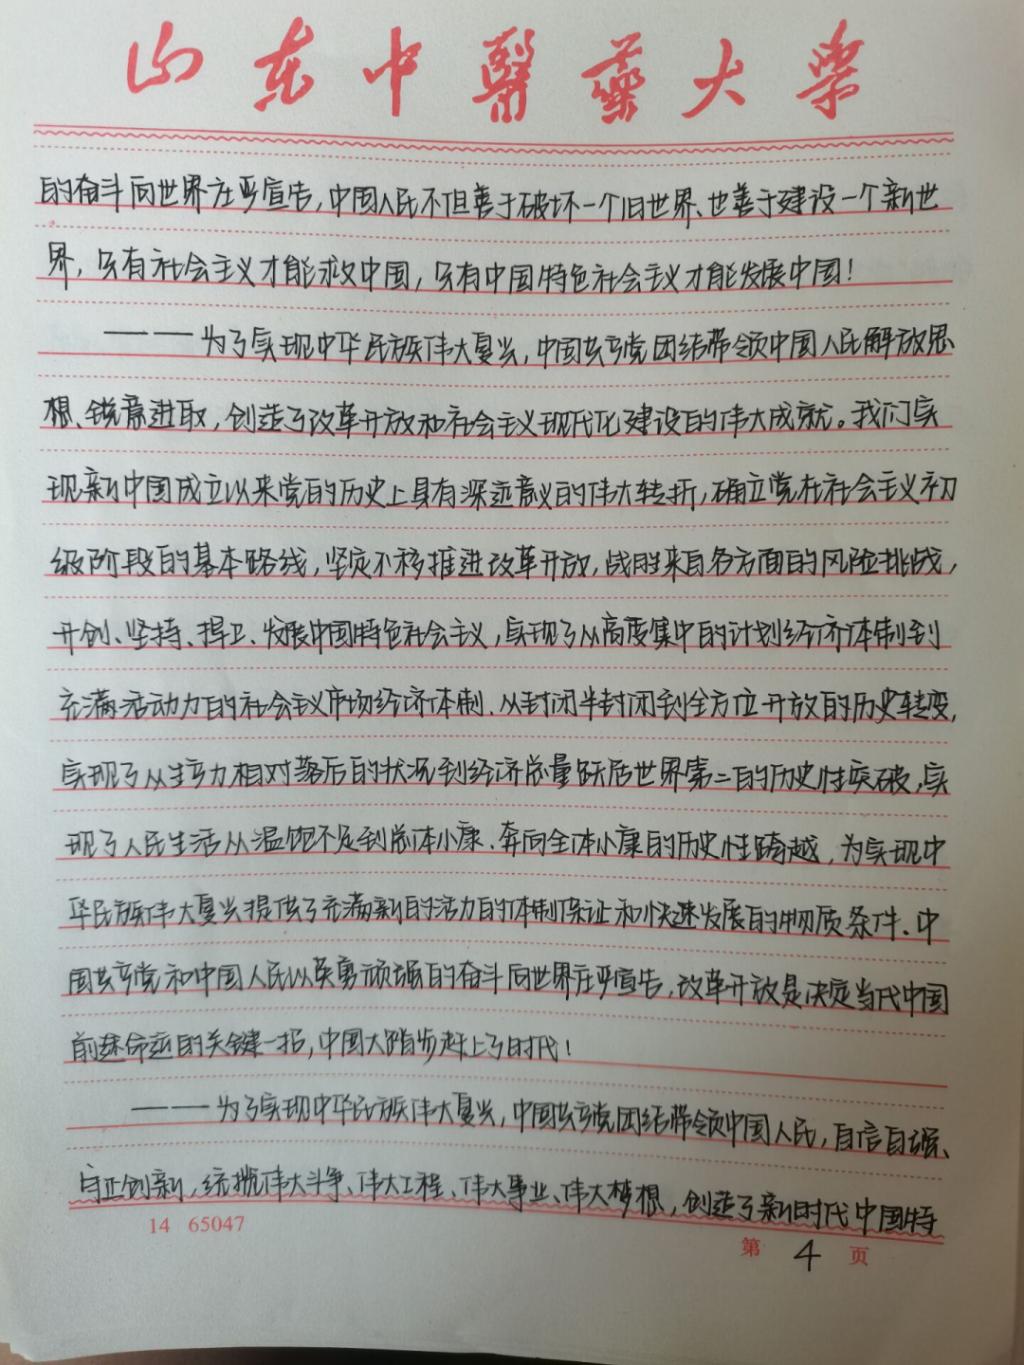 山东中醫藥大学
的奋斗向世界庄严宣告,中国人民不但善于破坏一个旧世界、也善于建设一个新世
界,只有社会主义才能救中国,只有中国特色社会主义才能发展中国!
———为了实现中华民族伟大复兴,中国共产党团结带领中国人民解放思
想、锐意进取,创造了改革开放和社会主义现代化建设的伟大成就。我们实
现新中国成立以来党的历史上具有深远意义的伟大转折,确立党在社会主义初
级阶段的基本路线,坚定不移推进改革开放,战胜来自各方面的风险挑战,
开创、坚持、捍卫、发展中国特色社会主义,实现了从高度集中的计划经济体制到
充满活动力的社会主义市场经济体制、从封闭半封闭到全方位开放的历史转变,
实现了从生产力相对落后的状况到经济总量跃居世界第二的历史性突破,实
现了人民生活从温饱不足到总体小康、奔向全体小康的历史性跨越,为实现中
华民族伟大复兴提供了充满新的活力的体制保证和快速发展的物质条件、中
国共产党和中国人民以英勇顽强的奋斗向世界庄严宣告,改革开放是决定当代中国
前途命运的关键一招,中国大踏步赶上了时代!
———为了实现中华民族伟大复兴,中国共产党团结带领中国人民,自信自强、
守正创新,统揽伟大斗争、伟大工程、伟大事业、伟大梦想,创造了新时代中国特
14 65047
第 4 页